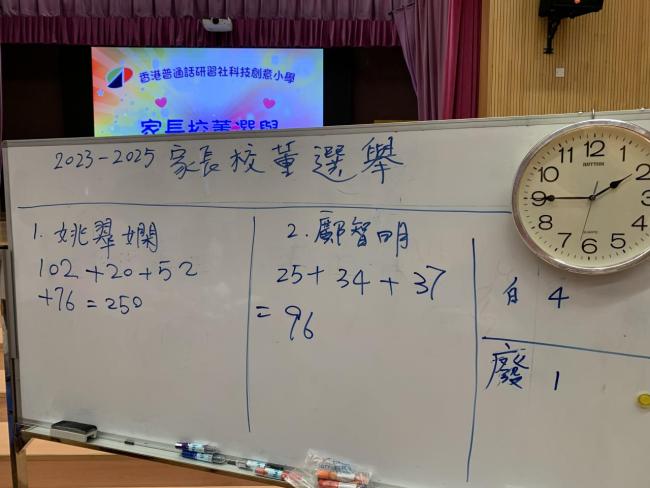 香港普通話研習社科技創意小學
家長校董選舉
2023-2025 家長校董選舉
1. 姚翠嫻
102+20+52
+76=250
2. 鄺智明
25+34+37
=96
白 4
廢 1
12
1
2
3
4
5
6
7
8
9
10
11
RHYTHM